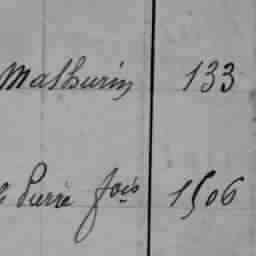 Mathurin 133
Pierre fois 1506